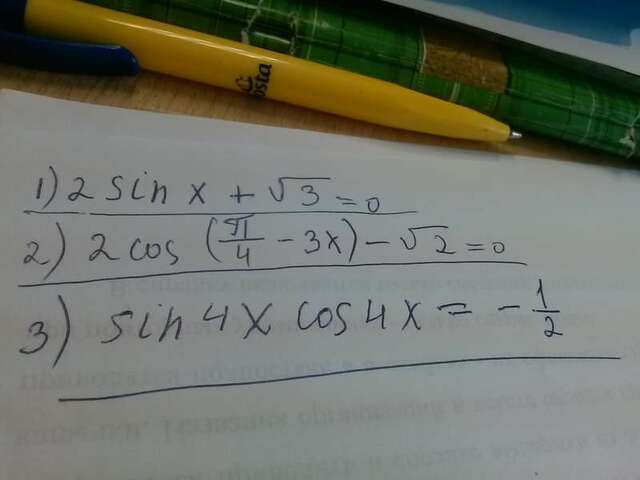 Costa
1) 2 sin x + √3 = 0
2) 2 cos (π/4 - 3x) - √2 = 0
3) sin 4x cos 4x = - 1/2